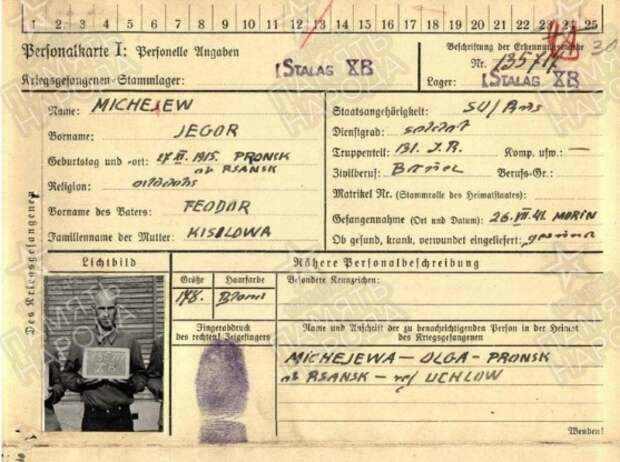 1 2 3 4 5 6 7 8 9 10 11 12 13 14 15 16 17 18 19 20 21 22 23 24 25
Personalkarte I: Personelle Angaben
Beschriftung der Erkennungsmarke
Nr. 135717
Kriegsgefangenen-Stammlager: STALAG XB
Lager: STALAG XB
Des Kriegsgefangenen
Name: MICHEJEW
Vorname: JEGOR
Geburtstag und -ort: 1915. PRONSK
ob RSANSK
Religion:
Vorname des Vaters: FEODOR
Familienname der Mutter: KISILOWA
Staatsangehörigkeit: SU/Russ
Dienstgrad: soldat
Truppenteil: J.R. Komp. usw.: —
Zivilberuf: Bauer Berufs-Gr.:
Matrikel Nr. (Stammrolle des Heimatstaates):
Gefangennahme (Ort und Datum): 26.VII.41. MORIN
Ob gesund, krank, verwundet eingeliefert: gesund
Lichtbild
Nähere Personalbeschreibung
Größe Haarfarbe
178. Blond
Besondere Kennzeichen:
Fingerabdruck
des rechten Zeigefingers
Name und Anschrift der zu benachrichtigenden Person in der Heimat
des Kriegsgefangenen
MICHEJEWA - OLGA - PRONSK
ob RSANSK - rej UCHLOW
Wenden!
XB
ПАМЯТЬ
НАРОДА